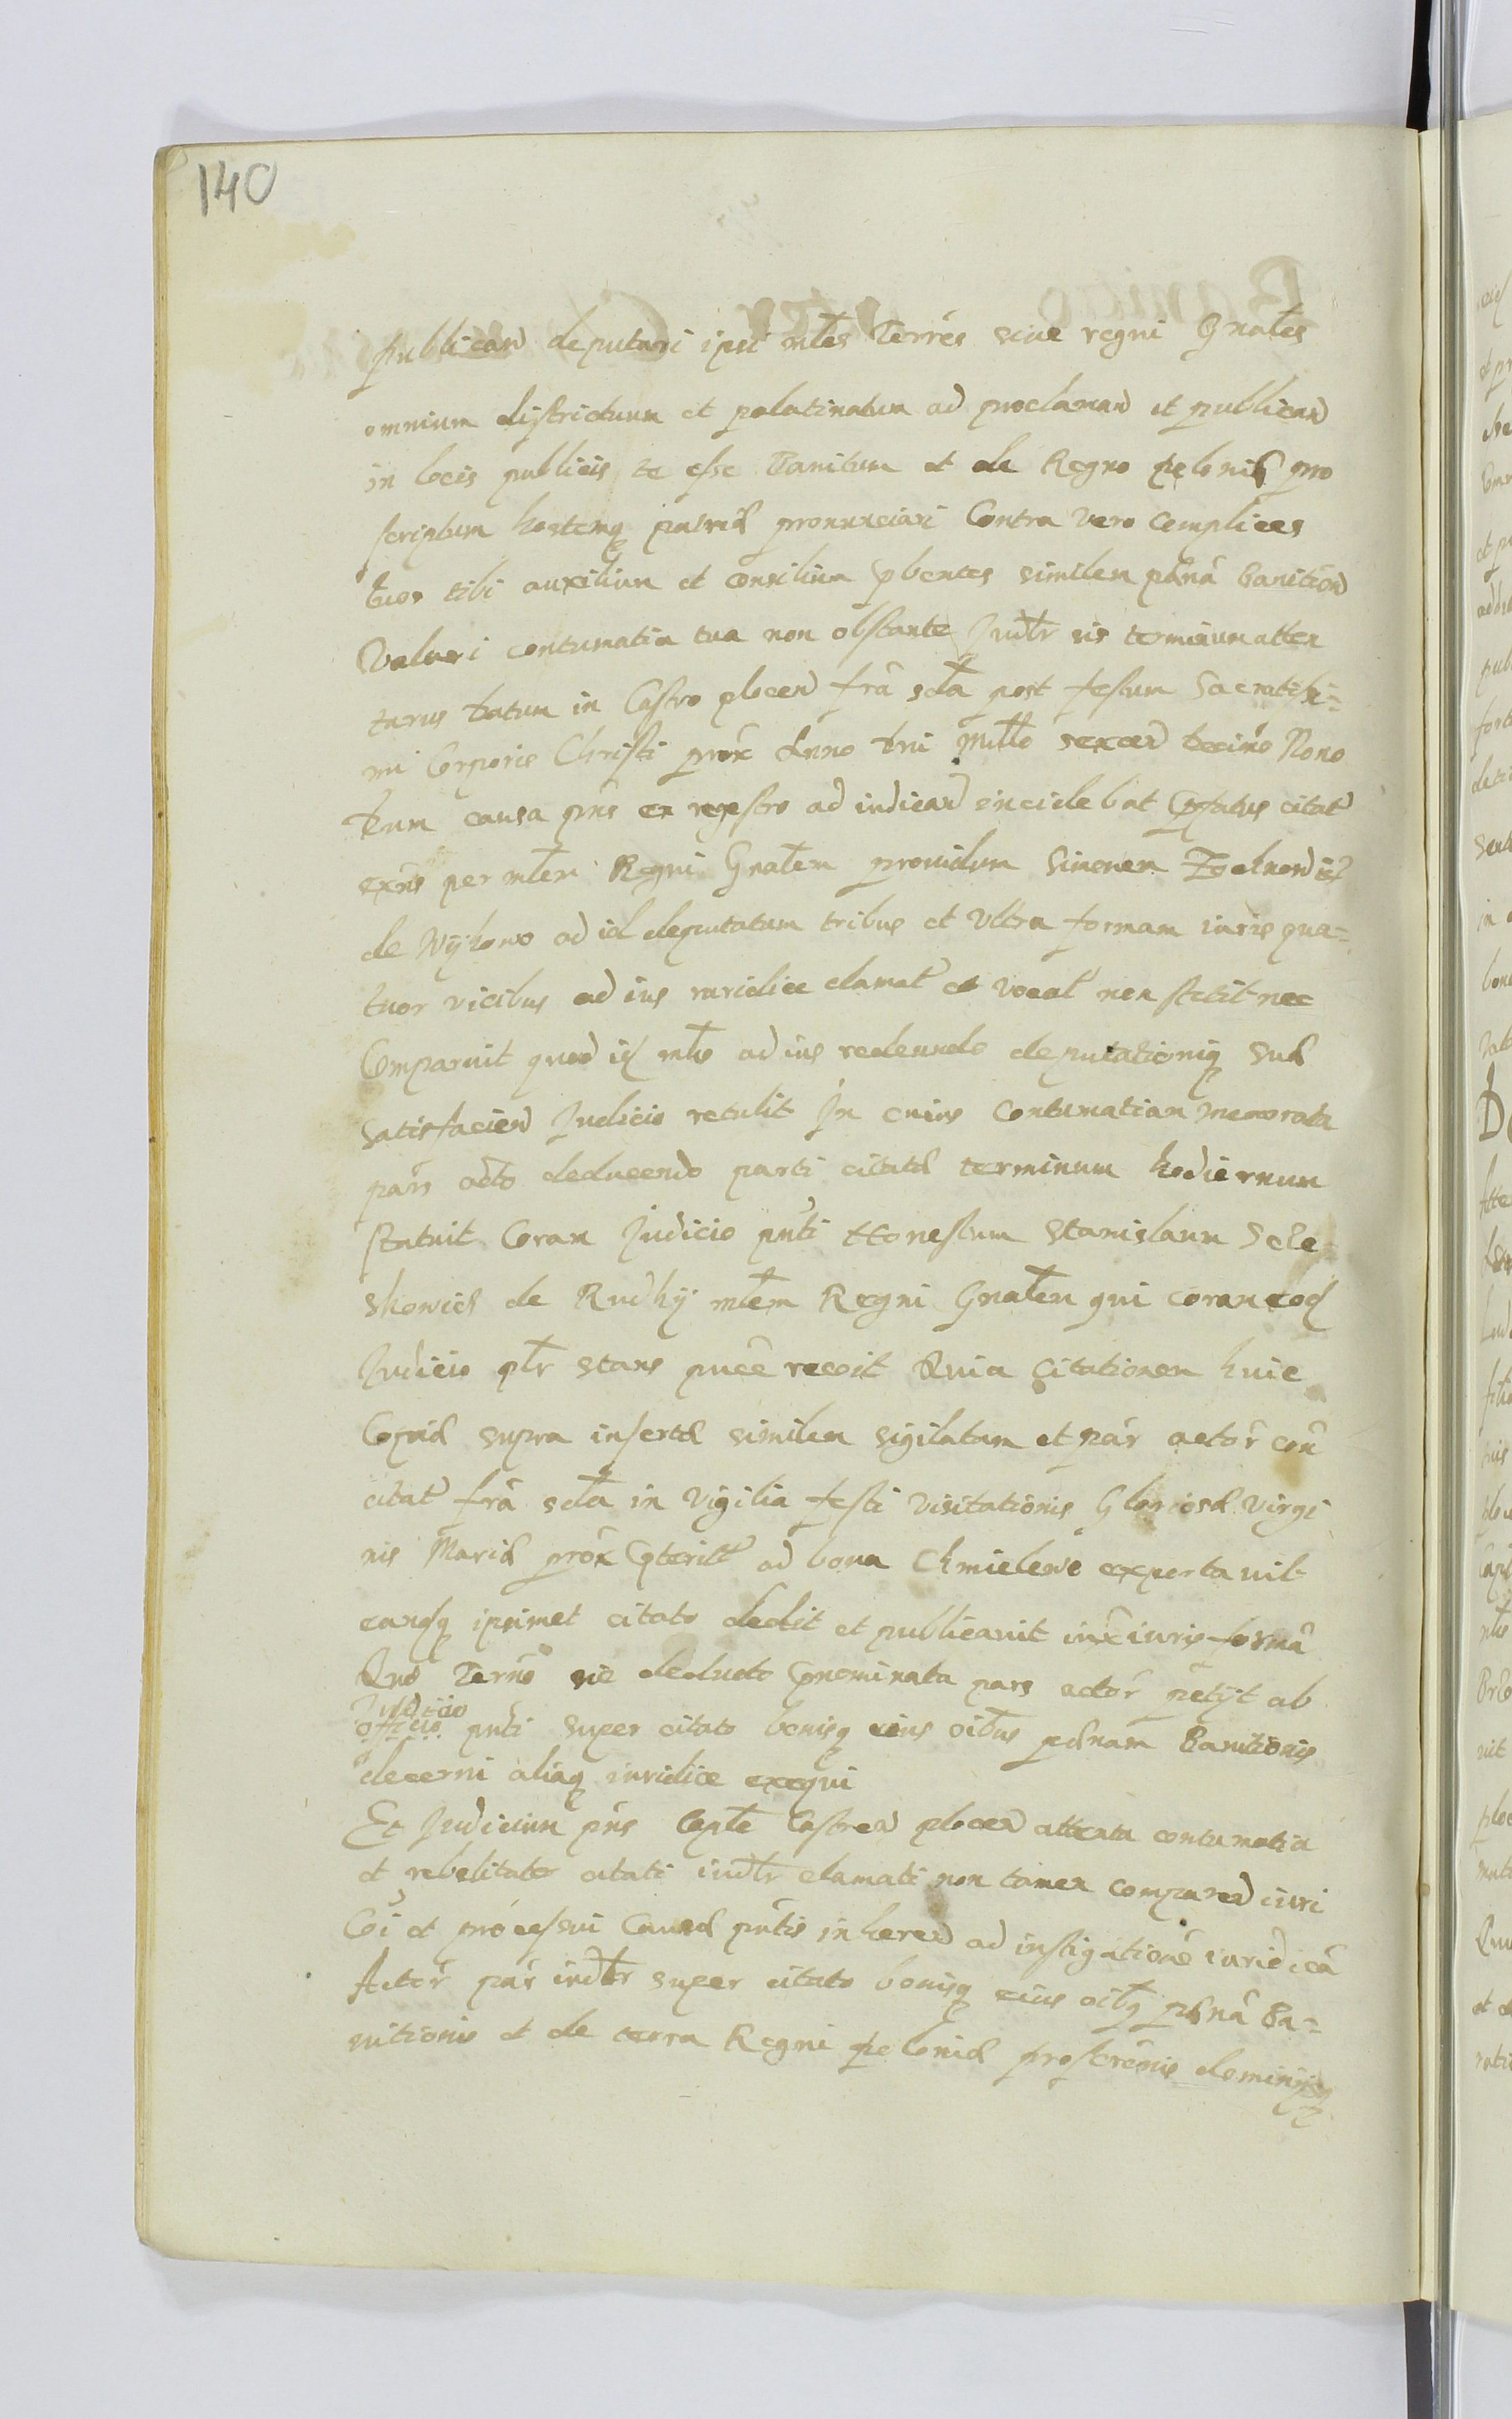 140
publican deputari ipsi mles Terres siue regni Gnales
omnium districtuum et palatinatum ad proclaman et publican
in locis publicis te esse Banitum et de Regno poloniæ pro
scriptum hostemq patriæ pronunciari Contra vero complices
tuos tibi auxilium et consilium pbentes similem pænâ banition
Valuari contumatia tua non obstante Judlr sis terminum atten
taturus Datum in Castro plocen frâ scda post festum Sacratissi=
mi Corporis Christi prox Anno Dni Millo sexcen decimo Nono
Dum causa pns ex regestro ad iudican incidebat Citatus
exns per mlem Regni Gnalem prouidum Simonem
de Wykowo ad id deputatum tribus et Vltra formam iuris qua=
tuor vicibus ad ius iuridice clamat et vocat non stetit nec
Comparuit quod id mls ad ius redeundo deputationiq suæ
satisfacien Judicio retulit In cuius Contumatiam memorata
pars acto deducendo parti citatæ terminum hodiernum
statuit Coram Judicio pnti Honestum Stanislaum Sele
skowicz de Rudky mlem Regni Gnalem qui coram eod
Judicio plr stans puce recoit Quia Citationem huic
Copiæ supra insertæ similem sigilatam et par actor con
citat frâ scda in Vigilia festi Visitationis Gloriosæ Virgi
nis Mariæ prox pterit ad bona Chmielewo exportauit
eandq ipsimet citato dedit et publicauit iux iuris formâ
Quo Terno sic deducto pnominata pars actor petyt ab
Judicio
officio pnti super citato bonisq eius oibus pænam Banitionis
decerni aliaq iuridice exequi
Et Judicium pns Caple Castren plocen attenta contumatia
et rebelitate citati iudlr clamati non tamen comparen iuri
Coi et processui Causæ pntis inheren ad instigationê iuridicâ
Actor par iudlr super citato bonisq eius oibq pænâ Ba=
nitionis et de terra Regni poloniæ proscrenis dominyq